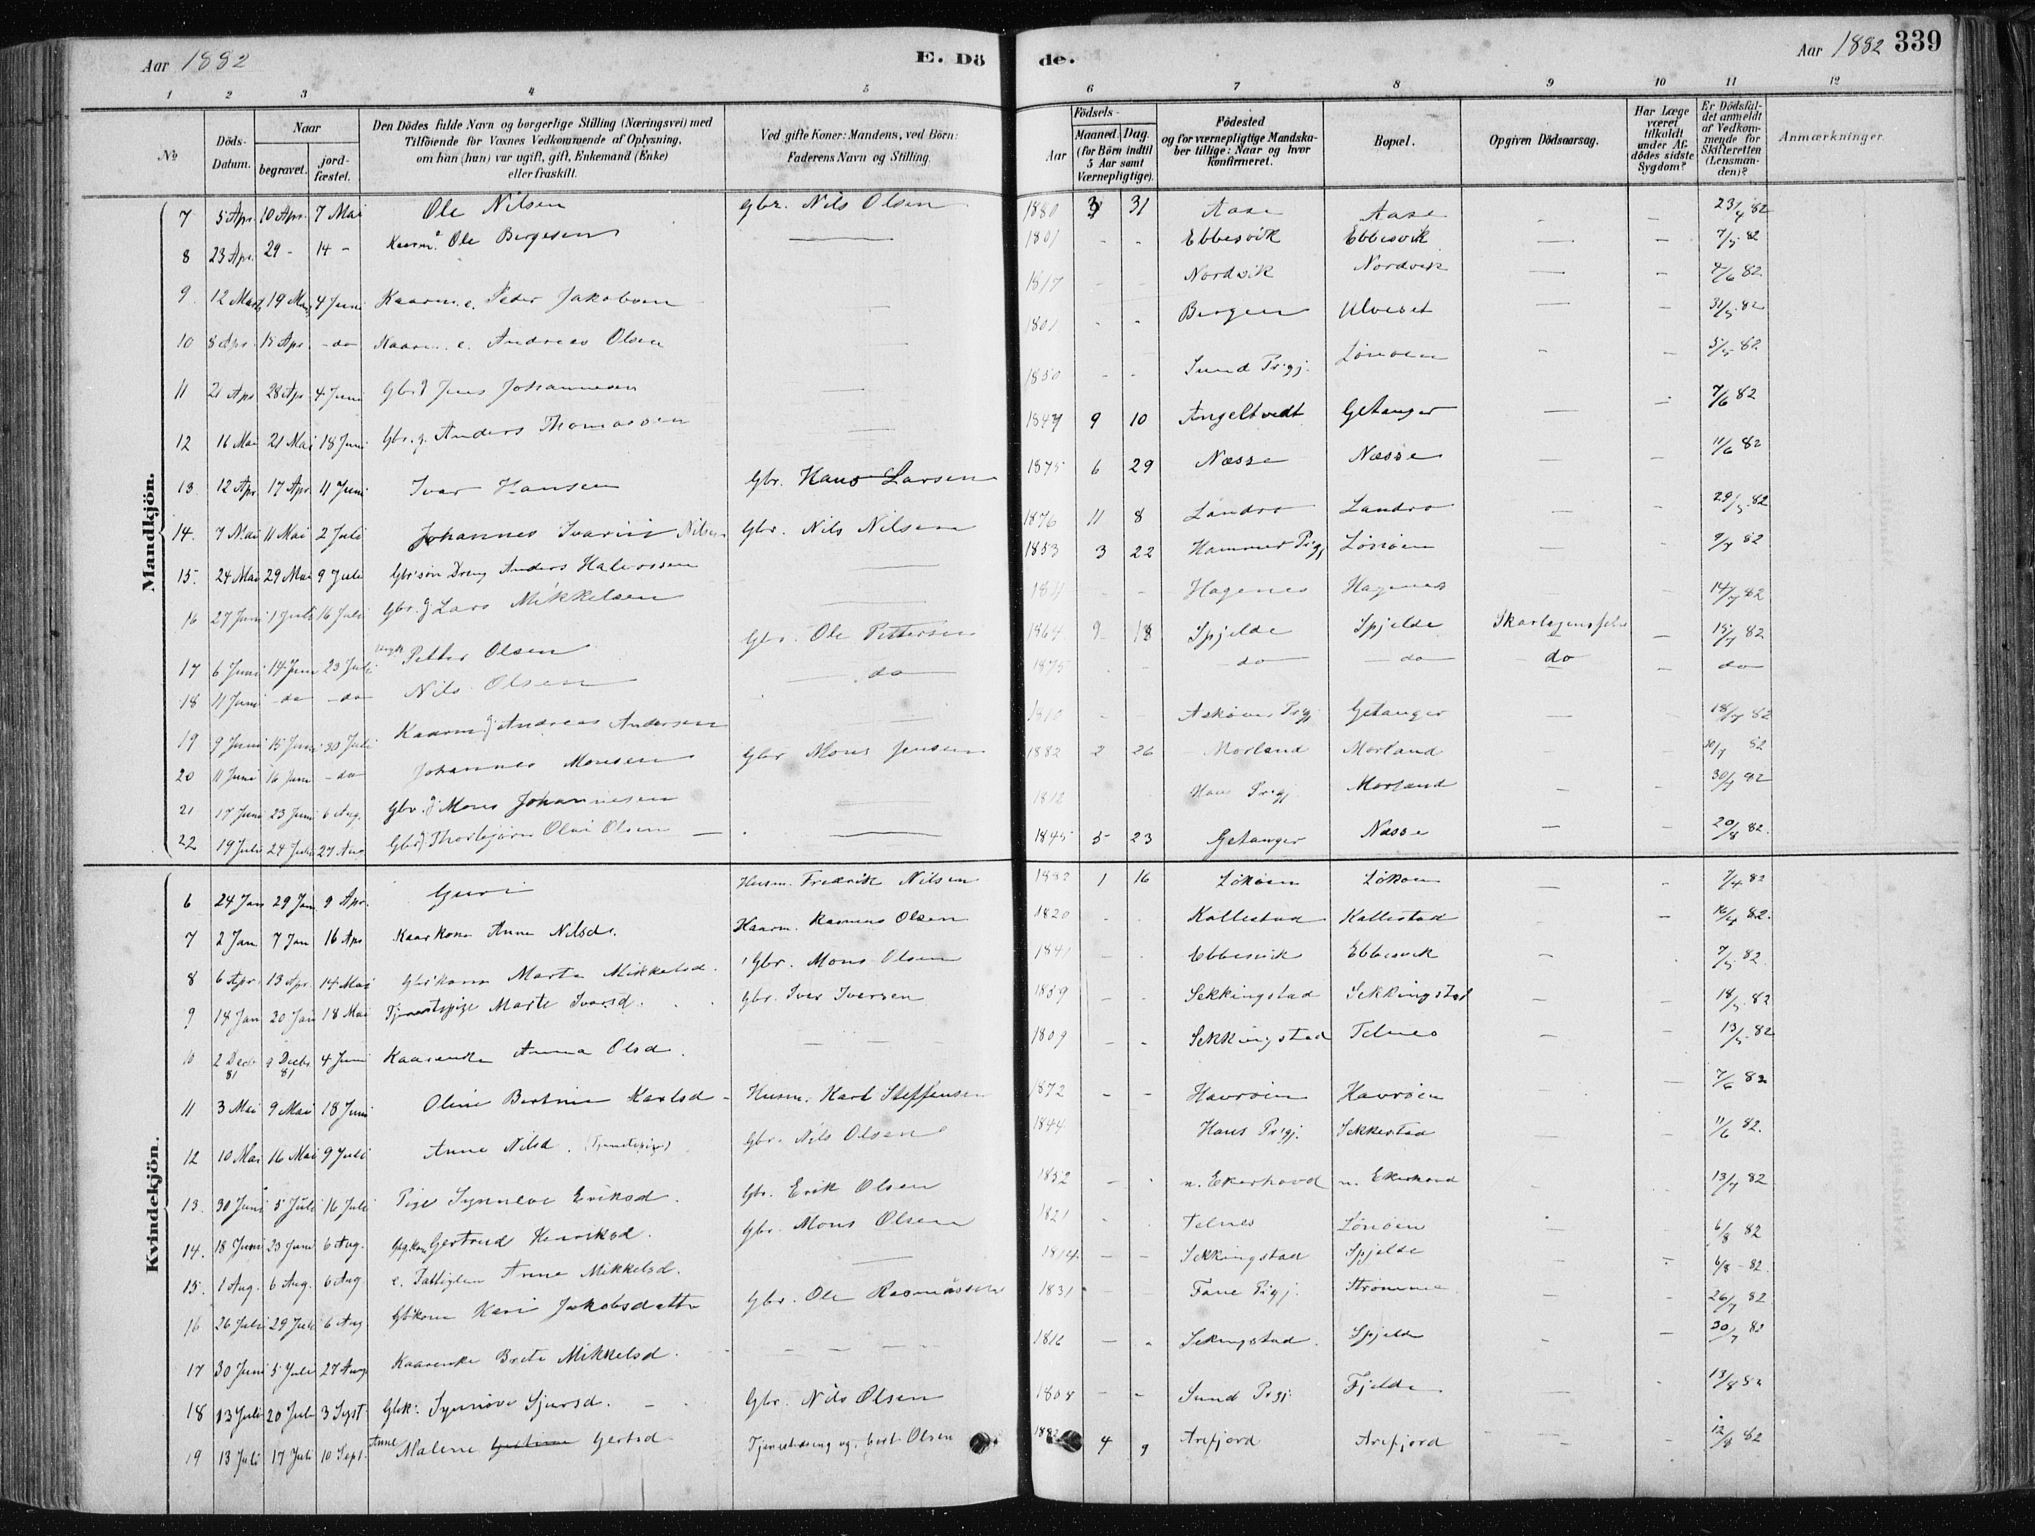 Aar 1882 E. Dö de. Aar 1882 339
1 2 3 4 5 6 7 8 9 10 11 12
No
Döds-Datum.
Naar
begravet.
jord-fæstet.
Den Dödes fulde Navn og borgerlige Stilling (Næringsvei) med
Tilföiende for Voxnes Vedkommende af Oplysning,
om han (hun) var ugift, gift, Enkemand (Enke)
eller fraskilt.
Ved gifte Koner: Mandens, ved Börn:
Faderens Navn og Stilling.
Födsels-
Aar
Maaned. Dag.
(for Börn indtil
5 Aar samt
Værnepligtige).
Födested
og for værnepligtige Mandska-
ber tillige: Naar og hvor
konfirmeret.
Bopæl.
Opgiven Dödsaarsag.
Har Læge
været
tilkaldt
under Af-
dödes sidste
Sygdom?
Er Dödsfal-
det anmeldt
af Vedkom-
mende for
Skifteretten
(Lensman-
den)?
Anmærkninger.
Mandkjön.
7 5 Apr. 10 Apr. 7 Mai Ole Nilsen Gbr. Nils Olsen 1880 31 Aase Aase — 23/4 82
8 23 Apr. 29 - 14 - Kaarm. Ole Børgesen — 1801 - - Ebbesvik Ebbesvik — - 7/5 82
9 12 19 4 Juni Kaarm. e. Peder Jakobsen — 1817 - - Nordvik Nordvik — - 4/6 82
10 8 Apr. 15 Apr. - do Kaarm. e. Andreas Olsen — 1801 - - Bergen Ulveset — - 31/5 82
11 21 Apr 28 Apr. 4 Juni Gbr. Jens Johannesen — 1850 - - Sund Prgj. Lønøen - - 5/5 82
12 16 Mai 21 Mai 18 Juni Gbr. g. Anders Thomassen 9 10 Angeltvedt Getanger — - 7/6 82
13 12 Apr 17 Apr. 11 Juni Ivar Hansen Gbr. Hans Larsen 1875 6 29 Næsse Næsse — - 11/6 82
14. 7 Mai 11 Mai 2 Juli Johannes Nilsen Gbr. Nils Nilsen 1876 11 8 Landro Landro — - 29/5 82
15. 24 Mai 29 Mai 9 Juli Gbrsøn Dreng Anders Halvorsen 1853 3 22 Hammer Prgj Lønøen — - 9/7 82
16 27 Juni 1 Juli 16 Juli Gbr. g Lars Mikkelsen — - - Hagenes Hagenes — 14/7 82
17 6 Juni 14 Juni 23 Juli Petter Olsen Gbr. Ole Pettersen 1864 9 18 Spjelde Spjelde — 15/7 82
18 11 Juni - do - do Nils Olsen — do 1875 - do - do do — do
19 9 Juni 15 Juni 30 Juli Kaarm. g. Andreas Andersen — 1810 - - Askøens Prgj Getanger — - 18/7 82
20 11 Juni 16 Juni - do Johannes Monsen Gbr Mons Jensen 1882 2 26 Morland Morland — - 30/7 82
21 17 Juni 23 Juni 6 Aug. Gbr. g Mons Johannesen — 1812 Haus Prgj. Morland
22 19 Juli 24 Juli 27 Aug Gbr. Thorbjørn Olai Olsen — 1845 5 23 Getanger Næsse — - 20/8 82.
Kvindekjön.
6 24 Jan 29 Jan 9 Apr. Guri Husm. Fredrik Nilsen 1882 1 16 Løkøen Løkøen — - 7/4 82
7 2 Jan. 7 Jan 16 Apr Kaarkone Anne Nilsd. Kaarm. Rasmus Olsen 1820 - - Kallestad Kallestad — - 16/4 82.
8 6 Apr. 13 Apr. 14 Mai Gbrkone Marta Mikkelsd. Gbr. Mons Olsen 1841 - - Ebbesvik Ebbesvik — 7/5 82.
9 14 Jan 20 Jan 18 Mai Tjenestepige Marte Ivarsd. Gbr. Iver Iversen 1859 - - Sekkingstad Sekkingstad — 18/5 82
10 2 Decbr 81 9 Decbr 81 4 Juni Kaarenke Anna Olsd. - - - 1809 - - Sekkingstad Telnes — - 13/5 82
11 3 Mai 9 Mai 18 Juni Oline Bertine Karlsd - Husm. Karl Steffensen 1872 - - Havrøen Havrøen — - 7/6 82
12 10 Mai 16 Mai 9 Juli Anne Nilsd. (Tjenestepige) Gbr. Nils Olsen 1844 Haus Prgj. Sekkestad — - 11/6 82.
13. 30 Juni 5 Juli 16 Juli Pige Synneve Eriksd. Gbr. Erik Olsen 1852 - - n. Ekerhovd n. Ekerhovd - 13/7 82
14. 18 Juni 23 Juni 6 Aug. Gertrud Henriksd. Gbr. Mons Olsen 1821 - Telnes Lønøen 6/8 82
15. 1 Aug. 6 Aug. 6 Aug. e. Fattiglem Anne Mikkelsd. — 1814. - - Sekkingstad Spjelde - 6/8 - 82.
16 26 Juli 29 Juli 6 Aug Gbkone Kari Jakobsdatter Gbr. Ole Rasmussen 1831 - Fane Prgj. Strømme 26/7 82
17 30 Juni 5 Juli 27 Aug Kaarenke Brita Mikkelsd. - - - 1816 - - Sekingstad. Spjelde - - 30/7 82
18 13 Juli 20 Juli 3 Sept Gbk. Synnøve Sjursd. - Gbr. Nils Olsen 1808 - - Sund Prgj Fjelde — - 13/8 82
19 13 Juli 17 Juli 10 Sept. Anne Malene Gertsd Tjenestedreng Olsen 1882 4 9 Arefjord Arefjord — 12/8 82